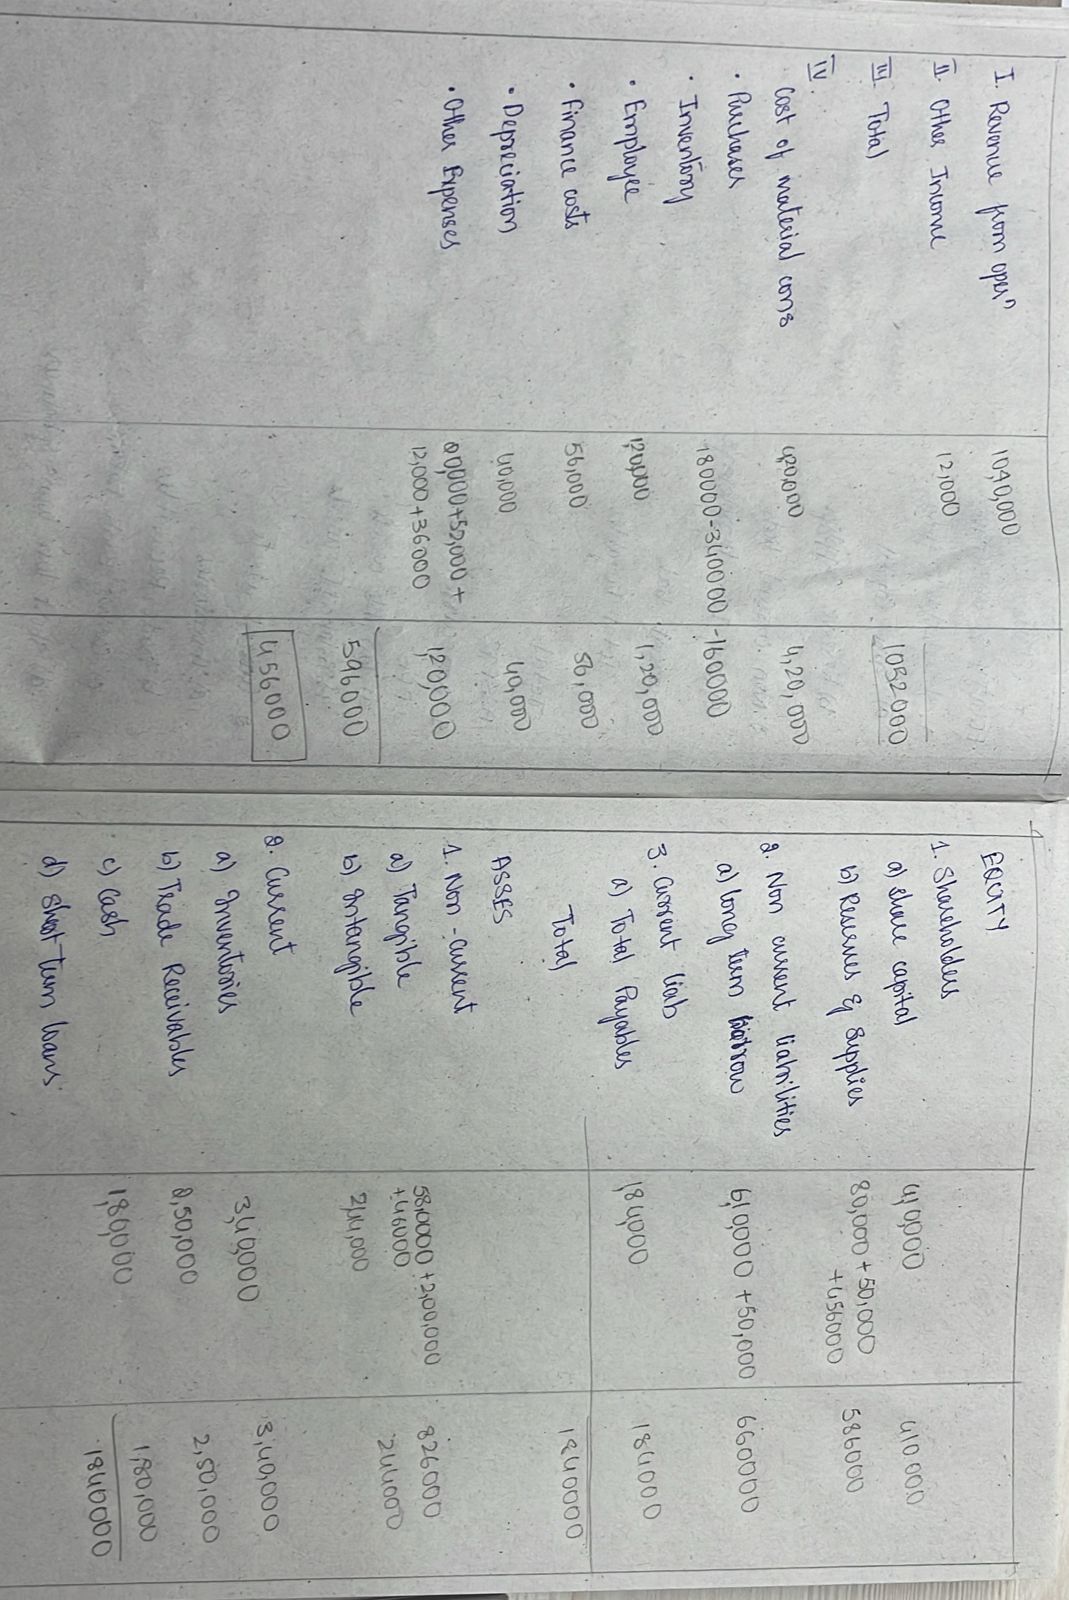 I. Revenue from operⁿ 1040,000
II. Other Income 12,000
III Total 1052000
IV.
Cost of material cons 420,000 4,20,000
• Purchases
• Inventory 180000-340000 -160000
• Employee 120,000 1,20,000
• Finance costs 56,000 56,000
• Depreciation 40,000 40,000
• Other Expenses 20,000+52,000+ 120,000
12,000+36000
596000
456000
EQUITY
1. Shareholders
a) share capital 410000 410000
b) Reserves & Supplies 80,000+50,000 586000
+456000
2. Non current liabilities
a) long term borrow 610,000 +50,000 660000
3. Current liab
a) Total Payables 184,000 184000
Total 1840000
ASSES
1. Non-current
a) Tangible 580000+2,00,000 826000
+46000
b) Intangible 244,000 244000
2. Current
a) Inventories 340,000 3,40,000
b) Trade Receivables 2,50,000 2,50,000
c) Cash 180,000 180,000
1840000
d) Short term loans